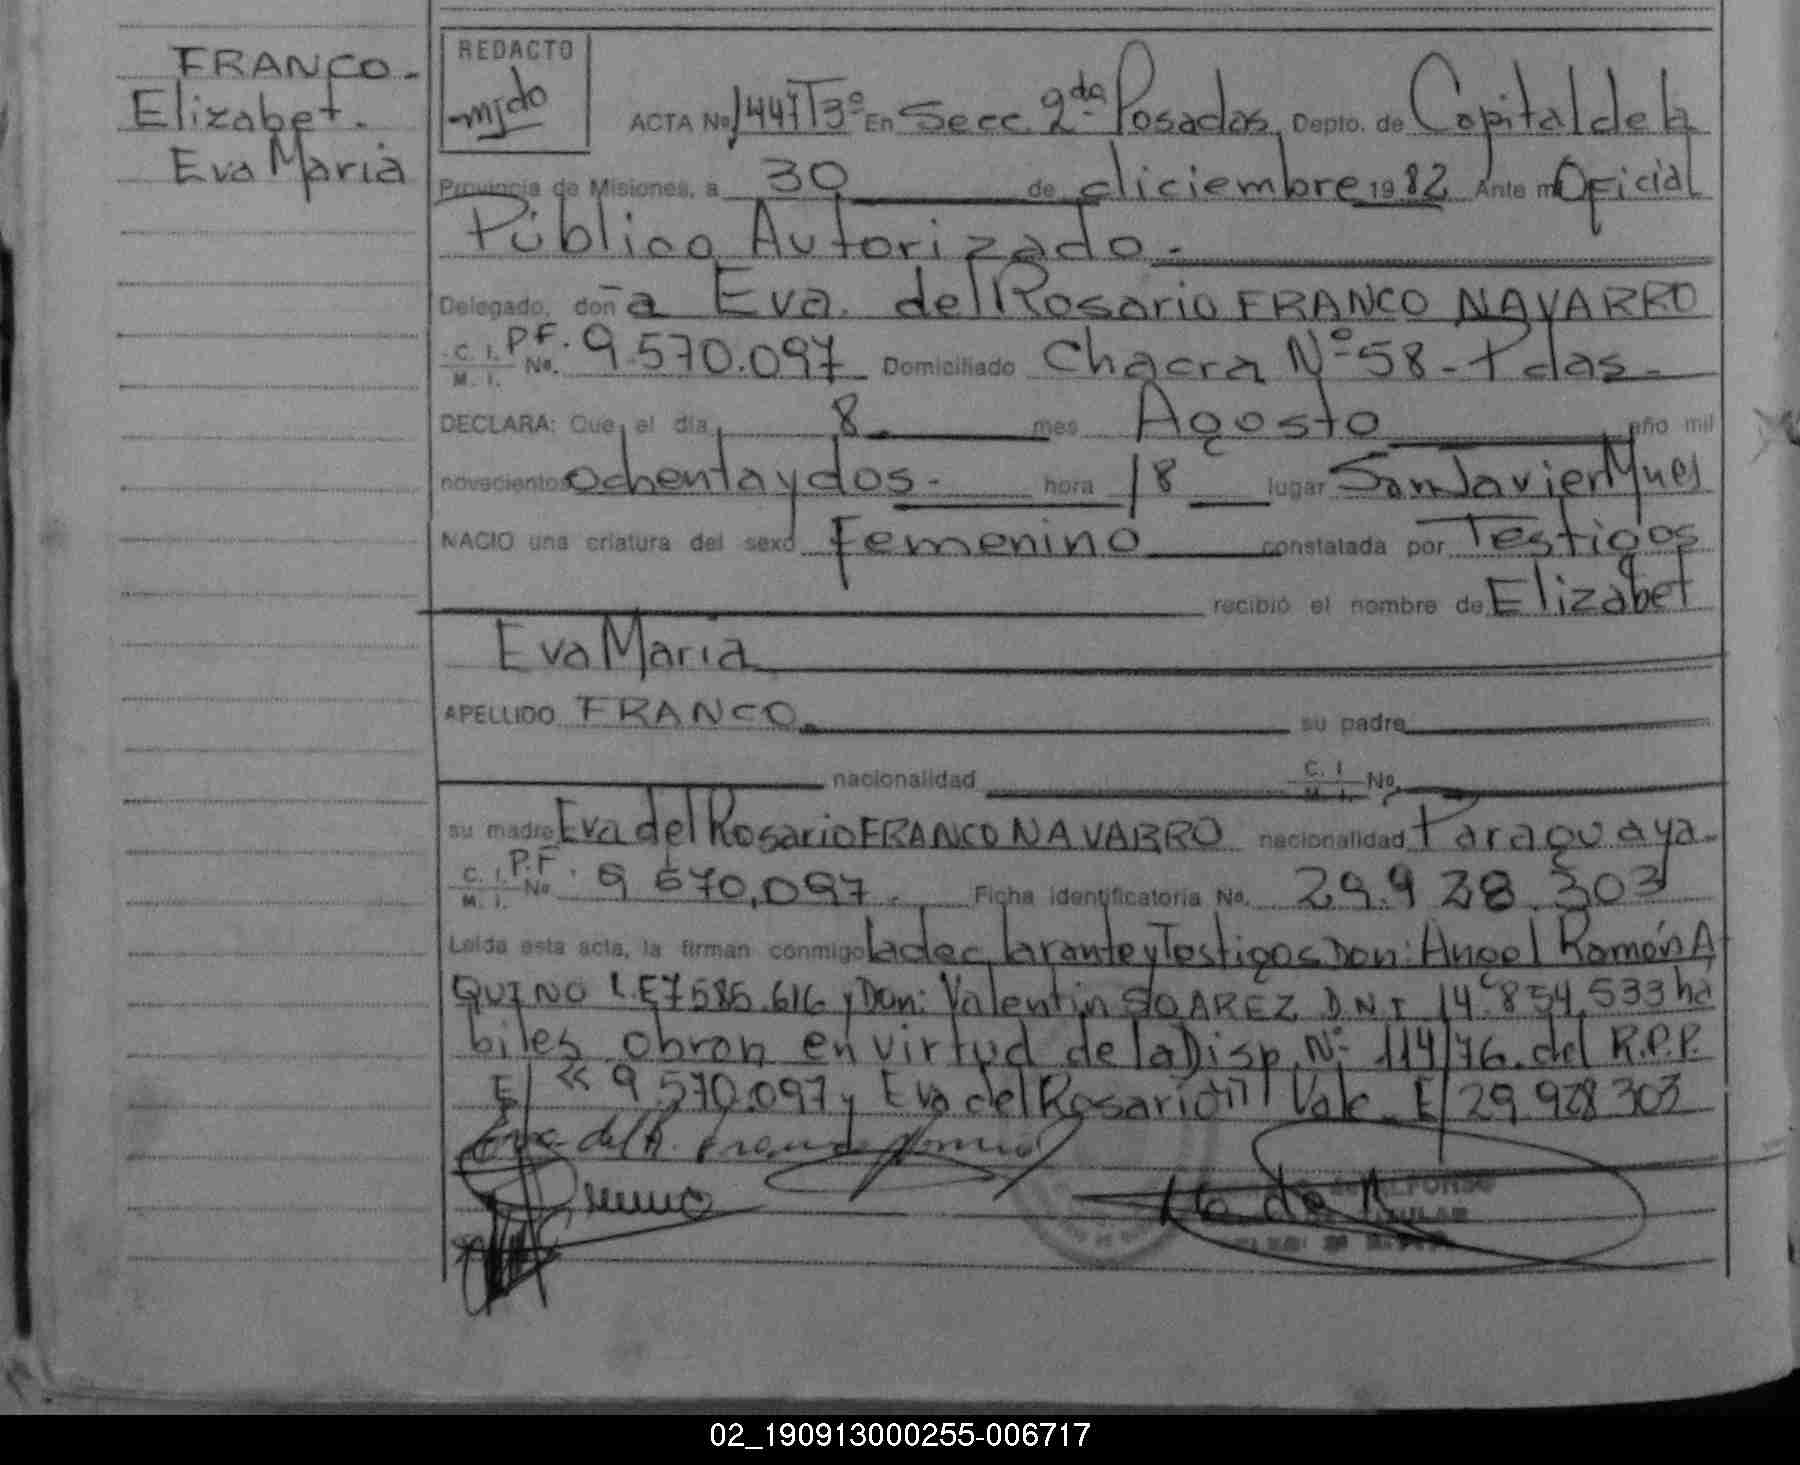 FRANCO.
Elizabet.
Eva Maria
REDACTO
ACTA No 1447 T3º En Secc. 2da Posadas, Depto. de Capital de la
Provincia de Misiones, a 30 de diciembre 1982 Ante mi Oficial
Público Autorizado.
Delegado, don a Eva. del Rosario FRANCO NAVARRO
C. I. M. I. PF. No. 9.570.097 Domiciliado Chacra Nº 58 - Pdas.
DECLARA: Que el día 8. mes Agosto año mil
novecientos ochenta y dos. hora 18 lugar San Javier Mnes
NACIO una criatura del sexo femenino constatada por Testigos
recibió el nombre de Elizabet
Eva Maria
APELLIDO FRANCO. su padre
nacionalidad C. I. M. I. No.
su madre Eva del Rosario FRANCO NAVARRO nacionalidad Paraguaya.
C. I. M. I. P.F. No. 9 570,097. Ficha identificatoria No. 29.928.303
Leída esta acta, la firman conmigo la declarante y Testigos Don: Angel Ramón A
QUINO L.E 7585.616 y Don: Valentin SOAREZ D.N.I 14.854.533 há
biles obran en virtud de la Disp. Nº 114/76. del R.P.P.
E/ << 9.570.097 y Eva del Rosario" Vale. E/ 29.928 303
02_190913000255-006717